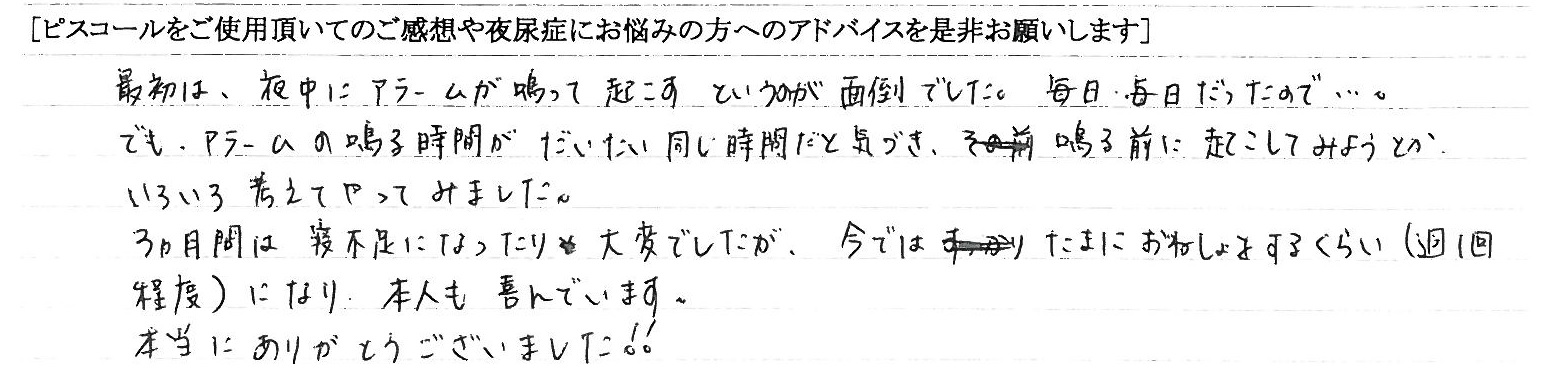 [ピスコールをご使用頂いてのご感想や夜尿症にお悩みの方へのアドバイスを是非お願いします]
最初は、夜中にアラームが鳴って起こすというのが面倒でした。毎日、毎日だったので…。
でも、アラームの鳴る時間がだいたい同じ時間だと気づき、その前鳴る前に起こしてみようとか、
いろいろ考えてやってみました。
3ヵ月間は寝不足になったり大変でしたが、今ではすっかりたまにおねしょをするくらい(週1回
程度)になり、本人も喜んでいます。
本当にありがとうございました!!